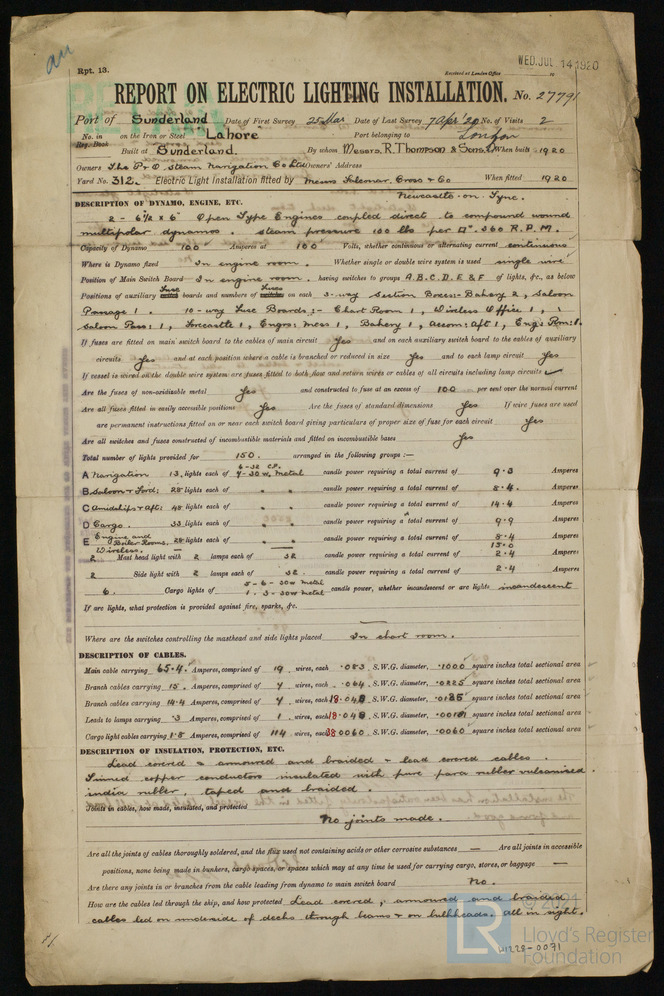 Rpt. 13.
Received at London Office
WED. JUL 14 1920
REPORT ON ELECTRIC LIGHTING INSTALLATION. No. 27791
Port of Sunderland Date of First Survey 25 Mar Date of Last Survey 7 Apr '20 No. of Visits 2
No. in Reg. Book on the Iron or Steel Lahore Port belonging to London
Built at Sunderland. By whom Messrs. R. Thompson & Sons. Ld When built 1920
Owners The P & O. Steam Navigation Co Ltd Owners' Address
Yard No. 312. Electric Light Installation fitted by Messrs Falconar, Cross & Co When fitted 1920
Newcastle-on-Tyne.
DESCRIPTION OF DYNAMO, ENGINE, ETC.
2 - 6½ x 6" Open Type Engines coupled direct to compound wound
multipolar dynamos. steam pressure 100 lbs per □". 360 R.P.M.
Capacity of Dynamo 100 Amperes at 100 Volts, whether continuous or alternating current continuous
Where is Dynamo fixed In engine room. Whether single or double wire system is used single wire
Position of Main Switch Board In engine room. having switches to groups A.B.C.D.E & F of lights, &c., as below
Positions of auxiliary Fuse boards and numbers of Fuses on each 3-way Section Boxes:- Bakery 2, Saloon
Passage 1. 10-way Fuse Boards:- Chart Room 1, Wireless Office 1,
Saloon Pass: 1, Forecastle 1, Engrs: Mess 1, Bakery 1, Accom: Aft 1, Eng: Rm: 8.
If fuses are fitted on main switch board to the cables of main circuit Yes and on each auxiliary switch board to the cables of auxiliary
circuits Yes and at each position where a cable is branched or reduced in size Yes and to each lamp circuit Yes
If vessel is wired on the double wire system are fuses fitted to both flow and return wires or cables of all circuits including lamp circuits
Are the fuses of non-oxidizable metal Yes and constructed to fuse at an excess of 100 per cent over the normal current
Are all fuses fitted in easily accessible positions Yes Are the fuses of standard dimensions Yes If wire fuses are used
are permanent instructions fitted on or near each switch board giving particulars of proper size of fuse for each circuit Yes
Are all switches and fuses constructed of incombustible materials and fitted on incombustible bases Yes
Total number of lights provided for 150. arranged in the following groups :—
A Navigation 13 lights each of 6-32 C.P. 7-30 w. metal candle power requiring a total current of 9.3 Amperes
B Saloon & Ford: 28 lights each of " " candle power requiring a total current of 8.4. Amperes
C Amidships & Aft: 48 lights each of " " candle power requiring a total current of 14.4 Amperes
D Cargo. 33 lights each of " " candle power requiring a total current of 9.9 Amperes
E Engine and Boiler Rooms. 28 lights each of " " candle power requiring a total current of 8.4 Amperes
Wireless. — — 15.0
2 Mast head light with 2 lamps each of 32 candle power requiring a total current of 2.4 Amperes
2 Side light with 2 lamps each of 32. candle power requiring a total current of 2.4 Amperes
6. Cargo lights of 5-6-30w metal 1-3-30w metal candle power, whether incandescent or arc lights incandescent
If arc lights, what protection is provided against fire, sparks, &c.
—
Where are the switches controlling the masthead and side lights placed In chart room.
DESCRIPTION OF CABLES.
Main cable carrying 65.4. Amperes, comprised of 19 wires, each .083 S.W.G. diameter, .1000 square inches total sectional area
Branch cables carrying 15. Amperes, comprised of 7 wires, each .064 S.W.G. diameter, .0225 square inches total sectional area
Branch cables carrying 14.4 Amperes, comprised of 7 wires, each S.W.G. diameter, square inches total sectional area
Leads to lamps carrying .3 Amperes, comprised of 1 wires, each S.W.G. diameter, square inches total sectional area
Cargo light cables carrying 1.8 Amperes, comprised of 114 wires, each S.W.G. diameter, .0060 square inches total sectional area
DESCRIPTION OF INSULATION, PROTECTION, ETC.
Lead covered & armoured and braided & lead covered cables.
Tinned copper conductors insulated with pure para rubber vulcanised
india rubber, taped and braided.
Joints in cables, how made, insulated, and protected
No joints made.
Are all the joints of cables thoroughly soldered, and the flux used not containing acids or other corrosive substances — Are all joints in accessible
positions, none being made in bunkers, cargo spaces, or spaces which may at any time be used for carrying cargo, stores, or baggage —
Are there any joints in or branches from the cable leading from dynamo to main switch board No.
How are the cables led through the ship, and how protected Lead covered, armoured and braided
cables led on underside of decks through beams & on bulkheads. All in sight.
© 2021
LR Lloyd's Register
Foundation
W1228-0071